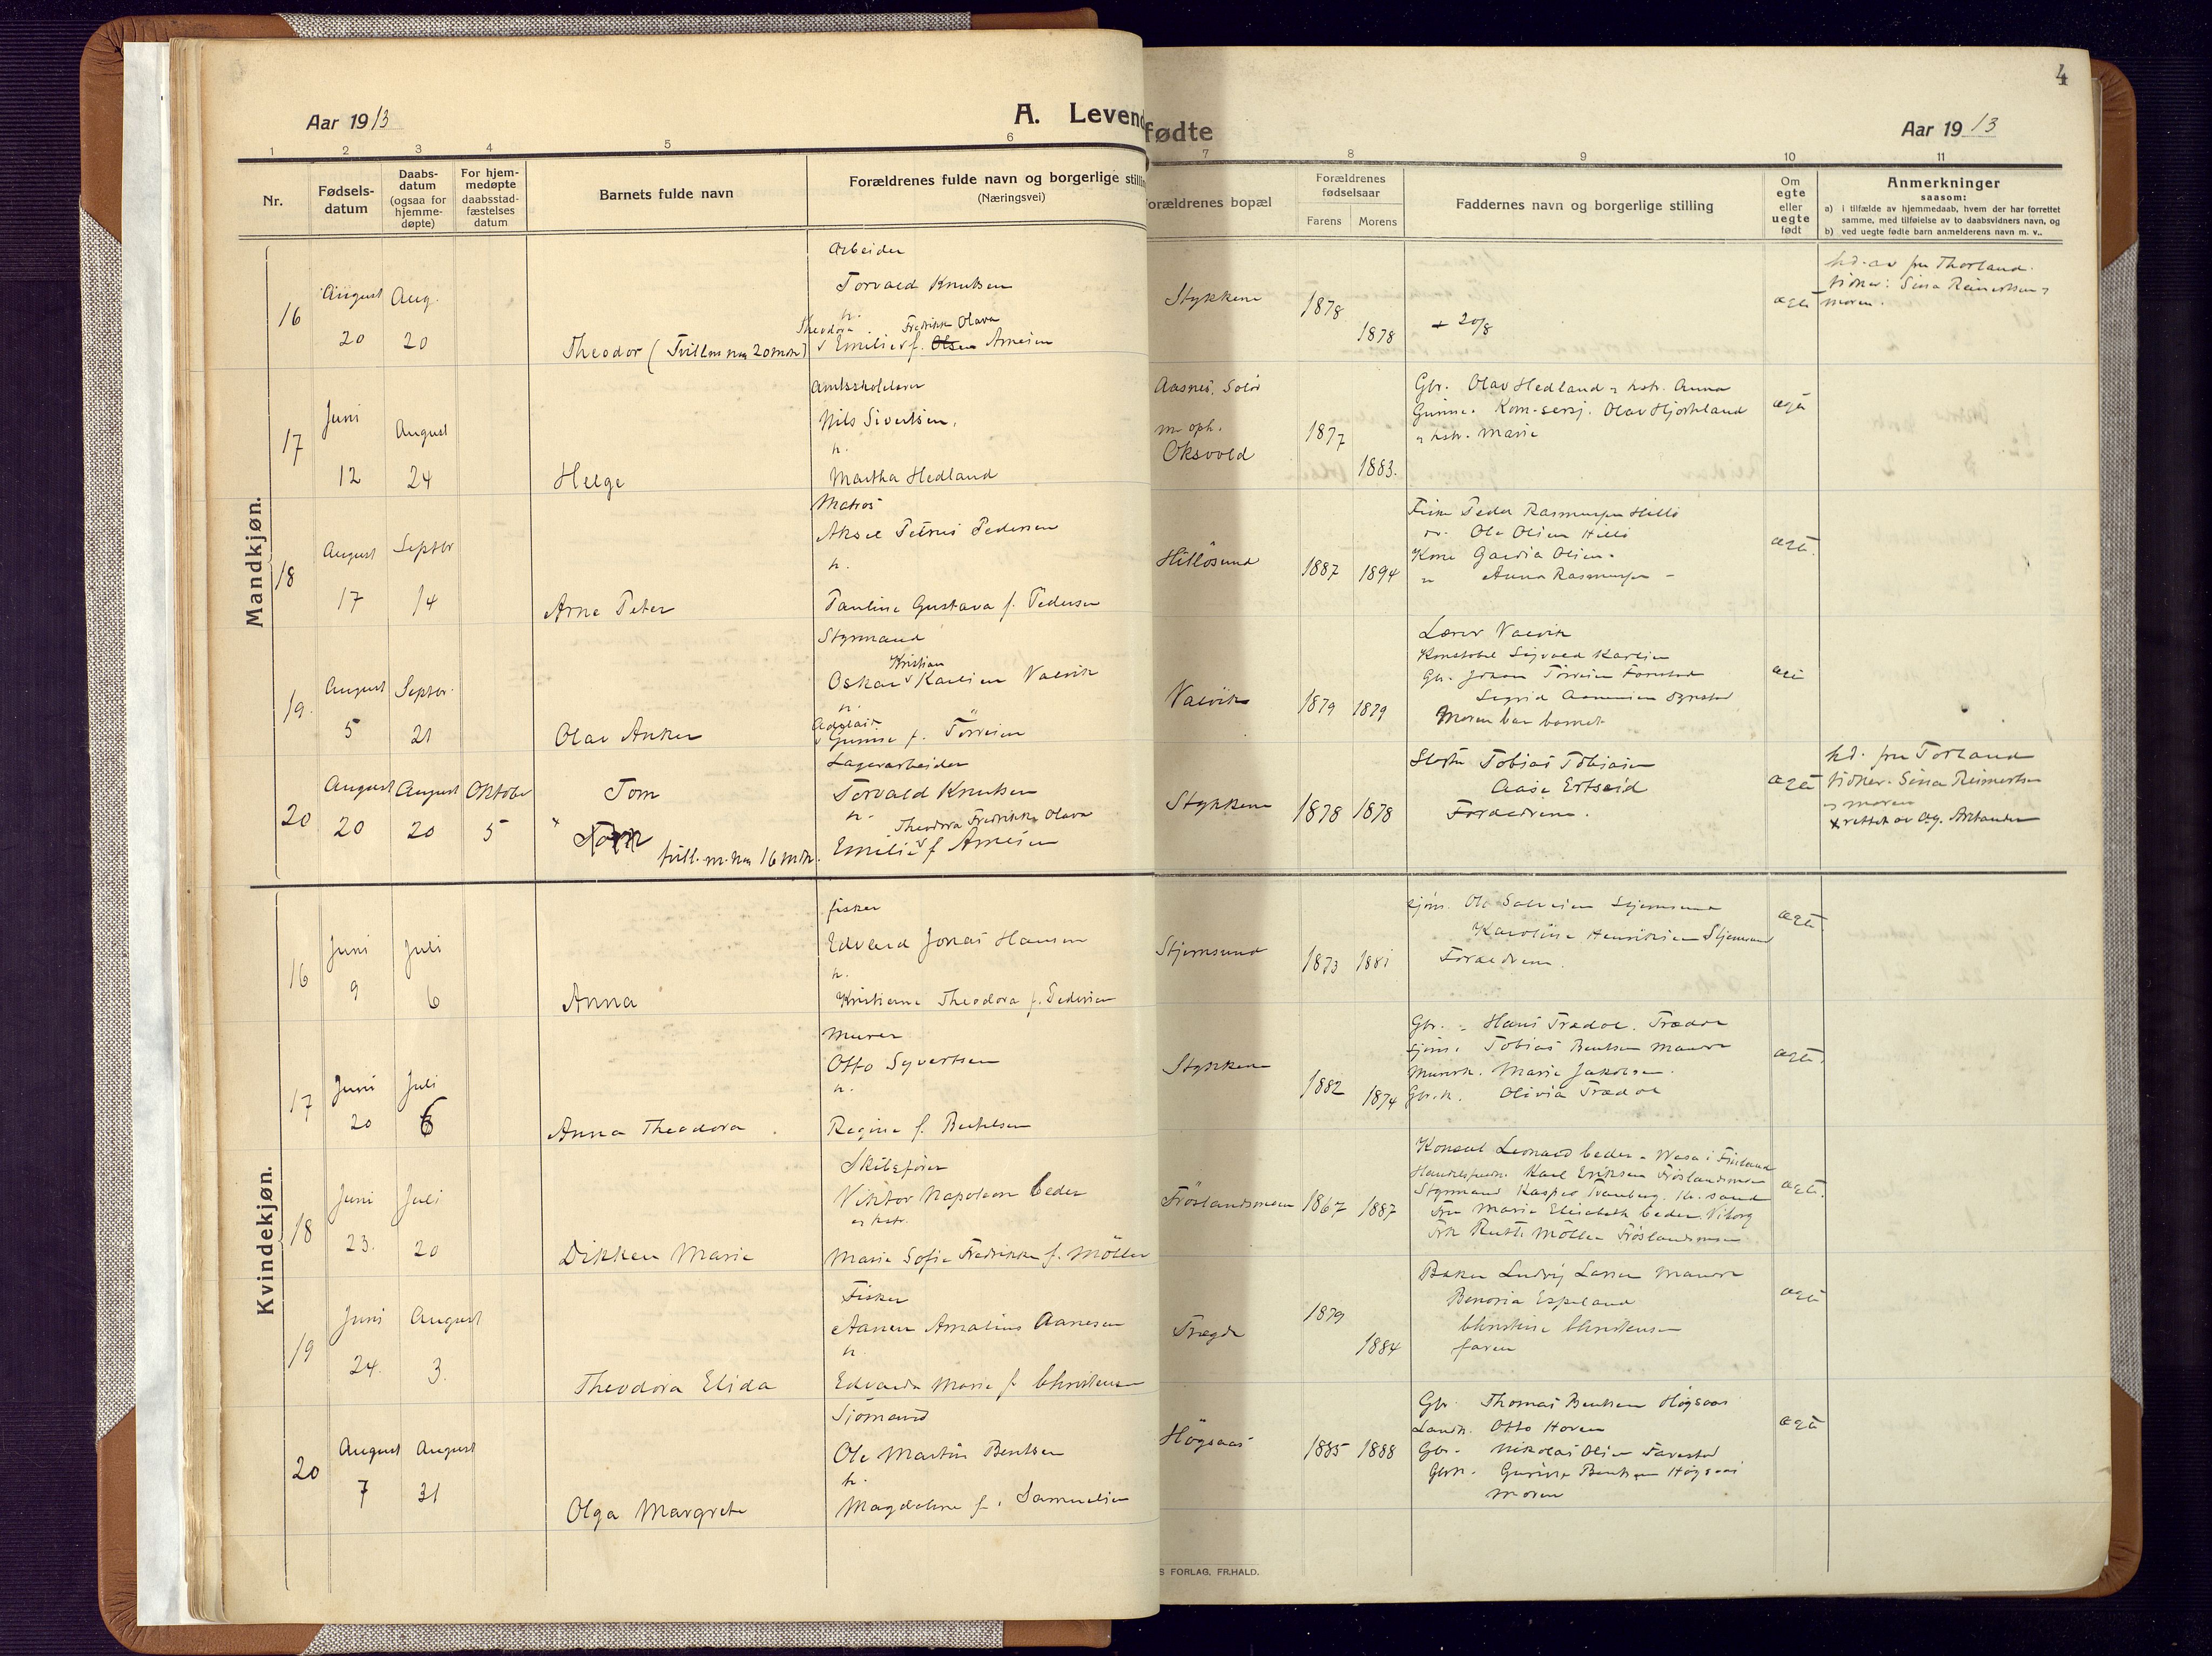 4
Aar 1913
A. Levend
fødte
Aar 1913
1 2 3 4 5 6 7 8 9 10 11
Nr.
Fødsels-
datum
Daabs-
datum
(ogsaa for
hjemme-
døpte)
For hjem-
medøpte
daabsstad-
fæstelses
datum
Barnets fulde navn
Forældrenes fulde navn og borgerlige stillin
(Næringsvei)
orældrenes bopæl
Forældrenes
fødselsaar
Farens Morens
Faddernes navn og borgerlige stilling
Om
egte
eller
uegte
født
Anmerkninger
saasom:
a) i tilfælde av hjemmedaab, hvem der har forrettet
samme, med tilføielse av to daabsvidners navn, og
b) ved uegte fødte barn anmelderens navn m. v..
Mandkjøn.
16
August Aug.
20 20
Theodor (Tvilling m no 20 mdk)
Arbeider
Torvald Knutsen
h.
Theodora Fredrikke Olava
Emilie f. Olsen Arnesen
Stykkene
1878 1878
+ 20/8
ægte
hd. av fru Thorland.
vidner: Sina Reinertsen
moren.
17
Juni August
12 24
Helge
Amtsskolelærer
Nils Sivertsen,
h.
Martha Hedland
Aasnes, Solør
m. oph.
Oksvold
1877 1883.
Gbr. Olav Hedland & hstr. Anna
Gunine. Kom-sersj. Olav Hjorteland
& hstr. Marie
ægte
18
August Septbr
17 14
Arne Peter
Matros
Aksel Petrus Pedersen
h.
Pauline Gustava f. Pedersen
Hillösund
1887 1894
Fisker Peder Rasmussen Hillö
Ole Olsen Hillö
Kone Gardia Olsen
" Anna Rasmussen -
ægte.
19.
August Septbr.
5 21
Olav Anker
Styrmand
Kristian
Oskar Karlsen Valvik
h.
Adelais
Gunine f. Törresen
Valvik
1879 1879
Lærer Valvik
Konstabel Sigvald Karlsen
Gbr. Johan Törresen
Sigrid
Moren bar barnet
ægte
20
August August Oktober
20 20 5
Tom
tvill. m. no 16 mdk.
Lagerarbeider
Torvald Knutsen
h. Theodora Fredrikke Olava
Emilie f Arnesen
Stykkene
1878 1878
Tobias Tobiasen
Aase Ertseid
Forældrene.
ægte
hd. fru Torland
vidner. Sina Reinertsen
& moren
x rettet av
Kvindekjøn.
16
Juni Juli
9 6
Anna
fisker
Edvard Jonas Hansen
h.
Kristiane Theodora f. Pedersen
Stjernsund
1873 1881
sjöm. Ole Salvesen Stjernsund
Karoline Henriksen Stjernsund
Forældrene.
ægte
17
Juni Juli
20 6
Anna Theodora
Murer
Otto Syvertsen
h.
Regine f. Berthelsen
Stykkene
1882 1874
Gbr. - Hans Trædal. Trædal
sjöm. Tobias Bentsen
Murerk. Marie Jakobsen.
Gbr.k. Olivia Trædal
ægte.
18
Juni Juli
23. 20
Dikken Marie
Skibsfører
Viktor Napoleon Ceder
& hstr.
Marie Sofie Fredrikke f. Möller
Fröslandsmoen
1867 1887
Konsul Leonard Ceder - Wasa i Finland
Karl Eriksen Fröslandsmoen
Styrmand Kasper Kr.sand
Fru Marie Elisabeth Ceder. Viborg
Frk Ruth Möller Fröslandsmoen
ægte.
19
Juni August
24. 3.
Theodora Elida
Fisker
Aanen Amalius Aanesen
h.
Edvarda Marie f Christensen
Trægde
1879 1884
Baker Ludvig Larsen
Benoria Espeland
Christine Christensen
faren
ægte
20
August August
7 31
Olga Margrete
Sjömand
Ole Martin Bentsen
h.
Magdalene f. Samuelsen
Högsaas
1885 1888
Gbr. Thomas Bentsen Högsaas
Landh. Otto Hoven
Gbr. Nikolai Olsen
Gbrk. Gunine Bentsen Högsaas
moren
ægte
S FORLAG, FR.HALD.